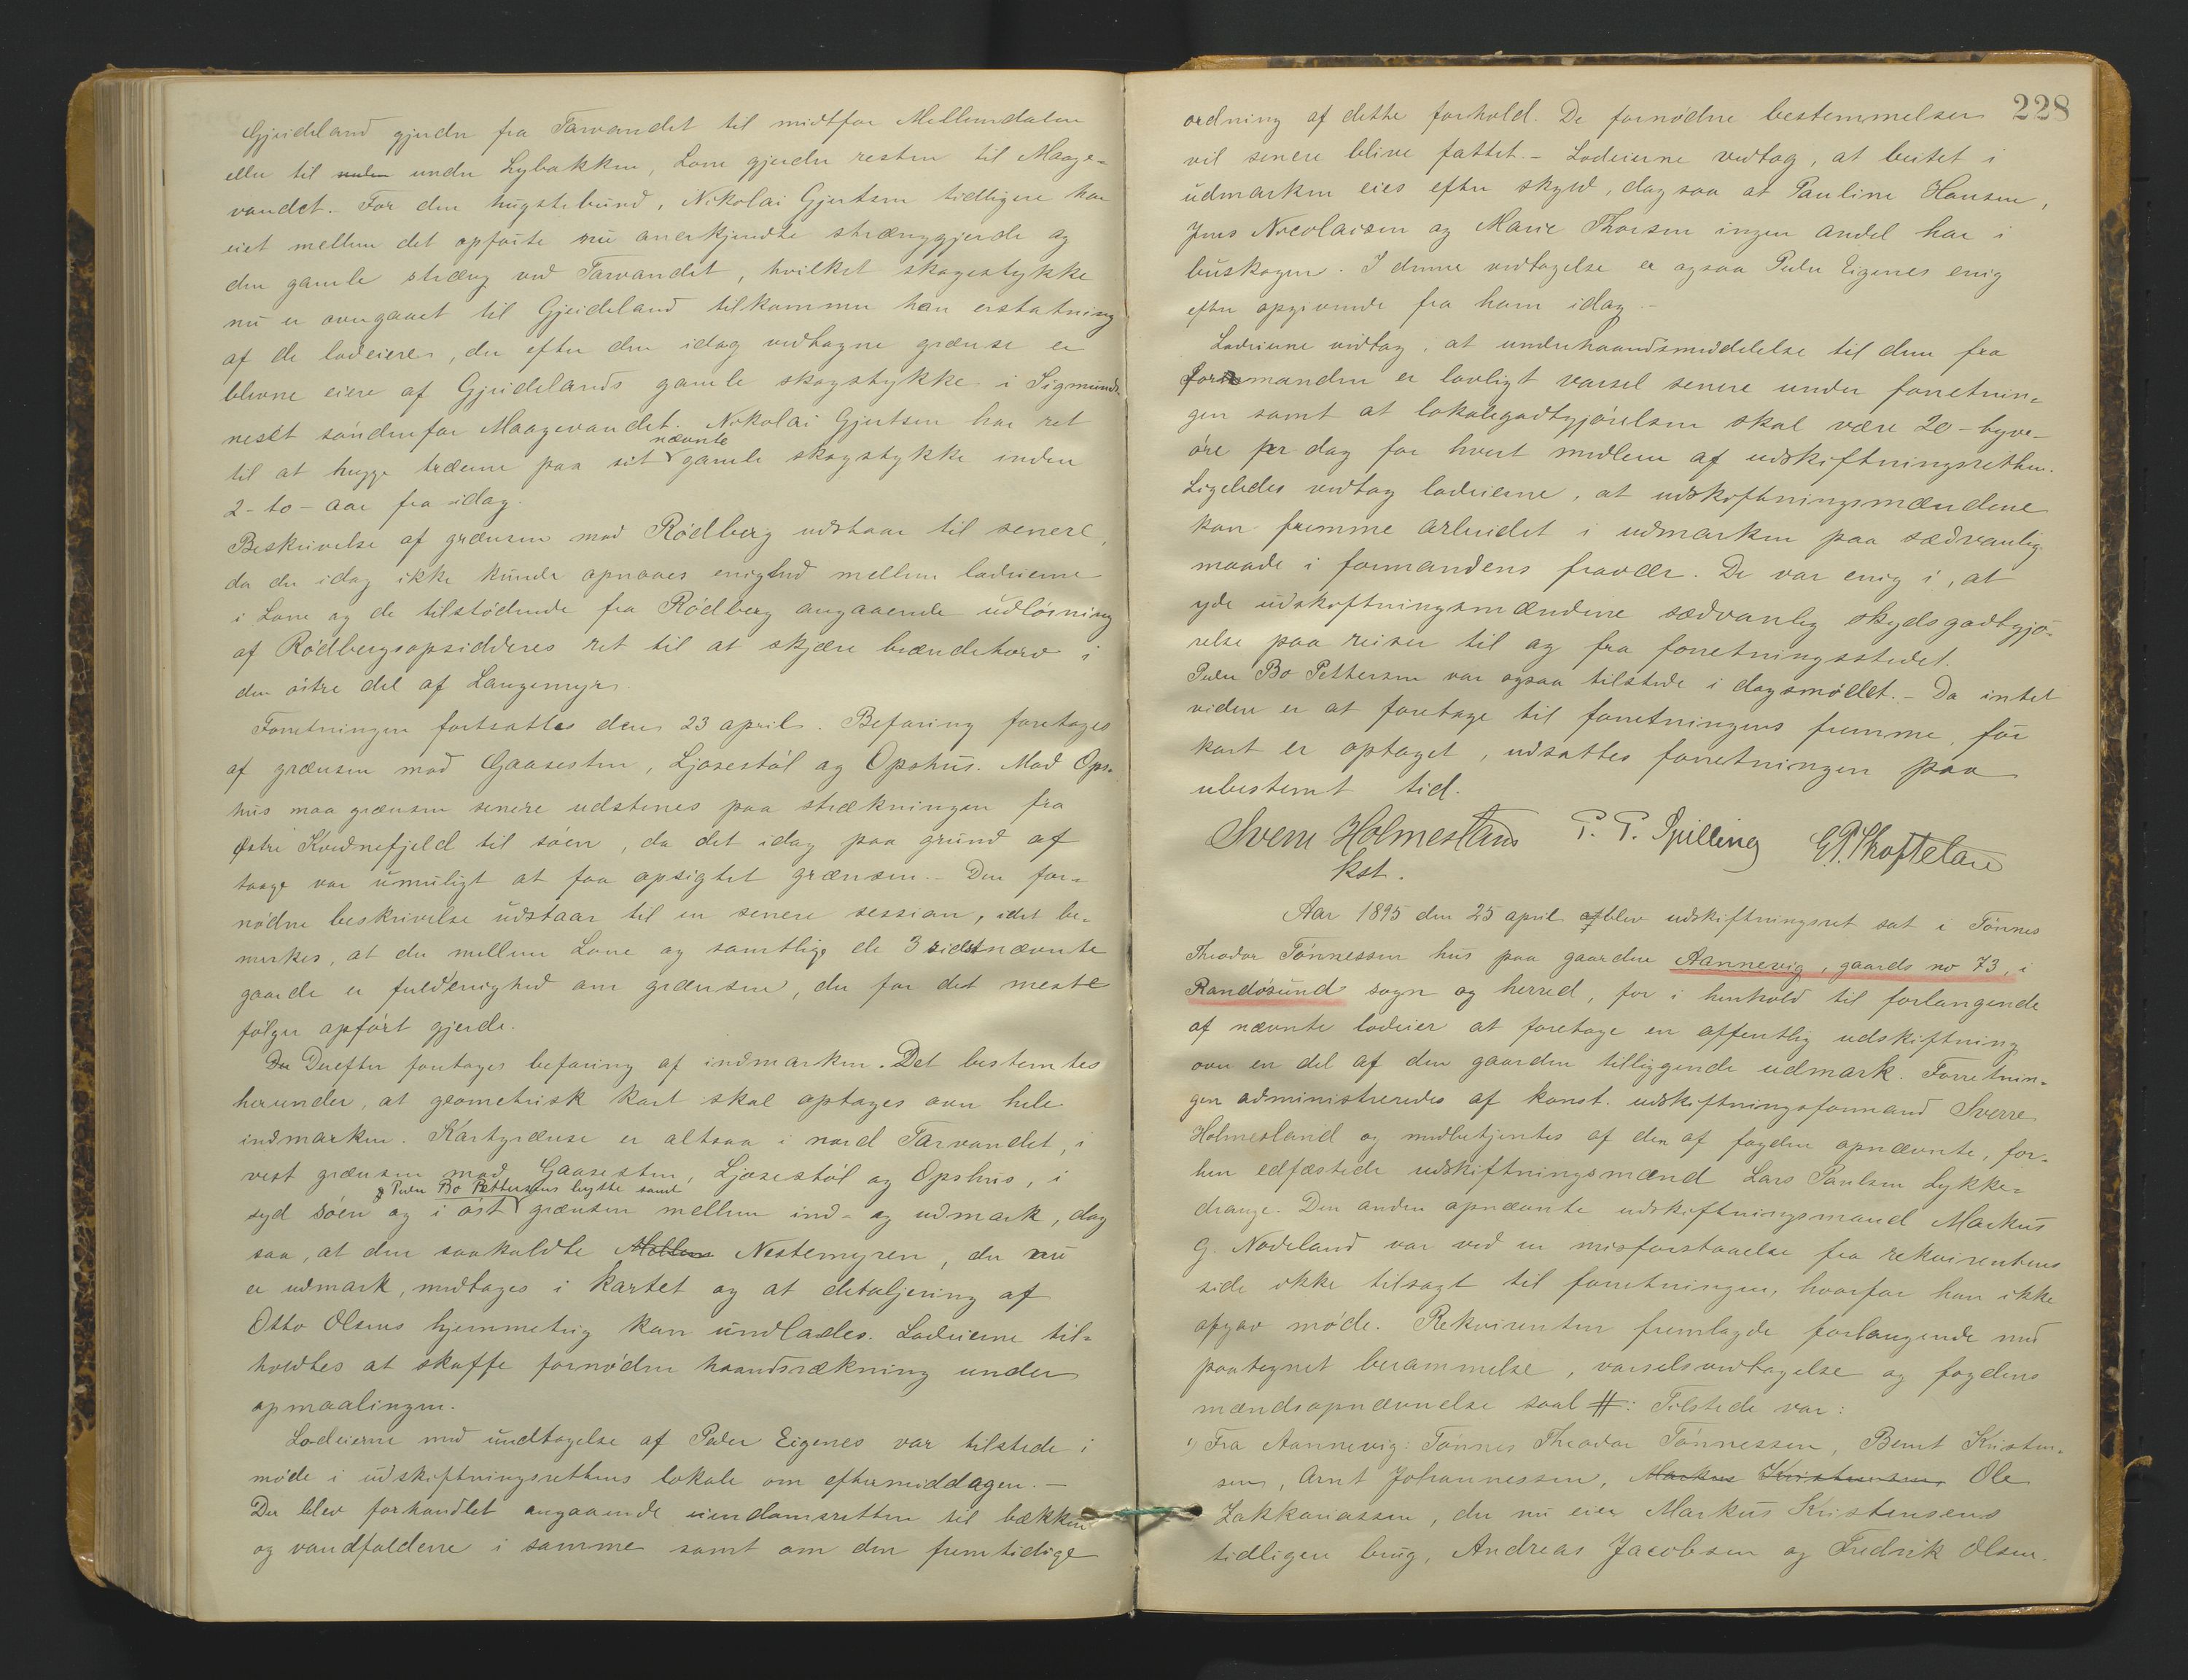 Gjeideland gjerder fra Tarvandet til midtfor Mellemdalen
eller til under Lybakken, Lone gjerder resten til Maage-
vandet. For den hugstebund, Nikolai Gjertsen tidligere har
eiet mellem det opførte nu anerkjendte strænggjerde og
den gamle stræng ved Tarvandet, hvilket skogestykke
nu er overgaaet til Gjeideland tilkommer han erstatning
af de lodeiere, der efter den idag vedtagne grænse er
blevne eiere af Gjeidelands gamle skogstykke i Sigmunds-
neset søndenfor Maagevandet. Nikolai Gjertsen har ret
til at hugge træerne paa sit nævnte gamle skogstykke inden
2-to-aar fra idag.
Beskrivelse af grænsen mod Rödberg udstaar til senere,
da der idag ikke kunde opnaaes enighed mellem lodeierne
i Lone og de tilstødende fra Rödberg angaaende udløsning
af Rödbergsopsidderes ret til at skjære brændetorv i
den østre del af Langemyr.
Forretningen fortsattes den 23 april. Befaring foretoges
af grænsen mod Gaasesten, Ljosestøl og Opshus. Mod Ops-
hus maa grænsen senere udstenes paa strækningen fra
Østre Kvednefjeld til søen, da det idag paa grund af
taage var umuligt at faa opsigtet grænsen. - Den for-
nødne beskrivelse udstaar til en senere session, idet be-
merkes, at der mellem Lone og samtlige de 3 sidstnævnte
gaarde er fuld enighed om grænsen, der for det meste
følger opført gjerde.
Der Derefter foretoges befaring af indmarken. Det bestemtes
herunder, at geometrisk kart skal optages over hele
indmarken. Kartgrænse er altsaa i nord Tarvandet, i
vest grænsen mod Gaasesten, Ljosestøl og Opshus, i
syd søen og i øst og Peder Bo Pettersens lykke samt grænsen mellem ind- og udmark, dog
saa, at den saakaldte Mellem Nestemyren, der nu
er udmark, medtages i kartet og at detaljering af
Otto Olsens hjemmeteig kan undlades. Lodeierne til-
holdtes at skaffe fornøden haandsrækning under
opmaalingen.
Lodeierne med undtagelse af Peder Eigenes var tilstede i
møde i udskiftningsrettens lokale om eftermiddagen. -
Der blev forhandlet angaaende eiendomsretten til bækken
og vandfaldene i samme samt om den fremtidige
228
ordning af dette forhold. De fornødne bestemmelser
vil senere blive fattet. - Lodeierne vedtog, at beitet i
udmarken eies efter skyld, dog saa at Pauline Hansen,
Jens Nicolaisen og Marie Thorsen ingen andel har i
buskogen. I denne vedtagelse er ogsaa Peder Eigenes enig
efter opgivende fra ham idag. -
Lodeierne vedtog, at underhaandsmeddelelse til dem fra
formanden er lovligt varsel senere under forretnin-
gen samt at lokalegodtgjørelsen skal være 20 - tyve-
øre per dag for hvert medlem af udskiftningsretten.
Ligeledes vedtog lodeierne, at udskiftningsmændene
kan fremme arbeidet i udmarken paa sædvanlig
maade i formandens fravær. De var enig i, at
yde udskiftningsmændene sædvanlig skydsgodtgjø-
relse paa reiser til og fra forretningsstedet.
Peder Bo Pettersen var ogsaa tilstede i dagsmødet. - Da intet
videre er at foretage til forretningens fremme, før
kart er optaget, udsattes forretningen paa
ubestemt tid.
Sverre Holmesland P. P. Spilling
kst.
Aar 1895 den 25 april af blev udskiftningsret sat i Tönnes
Theodor Tönnessen hus paa gaarden Aannevig, gaards no 73, i
Randösund sogn og herred, for i henhold til forlangende
af nævnte lodeier at foretage en offentlig udskiftning
over en del af den gaarden tilliggende udmark. Forretnin-
gen administreredes af konst. udskiftningsformand Sverre
Holmesland og medbetjentes af den af fogden opnævnte, for-
hen edfæstede udskiftningsmand Lars Paulsen Lykke-
drange. Den anden opnævnte udskiftningsmand Markus
G. Nodeland var ved en misforstaaelse fra rekvirentens
side ikke tilsagt til forretningen, hvorfor han ikke
afgav møde. Rekvirenten fremlagde forlangende med
paategnet berammelse, varselsvedtagelse og fogdens
mændsopnævnelse saal #: Tilstede var:
1) Fra Aannevig: Tönnes Theodor Tönnessen, Bernt Kristen-
sen, Arnt Johannessen, Markus Kristensen, Ole
Zakkariassen, der nu eier Markus Kristensens
tidligere brug, Andreas Jacobsen og Fredrik Olsen.